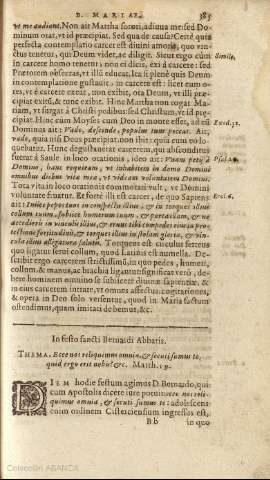 D. MARIAE. 385
vt me audiant. Non ait Martha sorori, adiuua me: sed Do-
minum orat, vt id præcipiat. Sed qua de causa? Certè quia
perfecta contemplatio carcer est diuini amoris, quo vin-
ctus tenetur, qui Deum videt, ac diligit. Sicut ergo cùm
in carcere homo tenetur; non ei dicis, exi à carcere: sed
Prætorem obsecras, vt illū educat, ita is plenè quis Deum
in contemplatione gustauit, in carcere est: licet eum ro-
ges, vt è carcere exeat, non exibit, ora Deum, vt illi præ-
cipiat exitū, & tunc exibit. Hinc Martha non rogat Ma-
riam, vt surgat à Christi pedibus: sed Christum, vt id præ-
cipiat. Hinc cum Moyses cum Deo in monte esset, ad eū
Dominus ait: Vade, descende, populum tuum peccat. Ait,
vade, quia nisi Deus præcipiat non ibit: quia cum eo lo-
quebatur. Hinc degustauerat carcerem, qui
fuerat à Saule in loco orationis, ideo ait: Vnam petij à
Domino, hanc requiram, vt inhabitem in domo Domini
omnibus diebus vitæ meæ, vt videam voluntatem Domini.
Tota vita in loco orationis commorari vult, vt Domini
voluntate fruatur. Et fortè illi est carcer, de quo Sapiens
ait: Inijce pedem tuum in compedes illius, & in torques illius
collum tuum, subijce humerum tuum, & porta illam, & ne
acedieris in vinculis illius, & erunt tibi compedes eius in pro-
tectione fortitudinis, & torques illius in stolam gloriæ, & vin-
cula illius alligatura salutis. Torques est circulus ferreus
quo ligatur ferro collum, quod Latinis est numella. De-
scribit ergo carcerem strictissimū, in quo pedes, humeri,
collum, & manus, ac brachia ligantur: significat verò, de-
bere hominem omnino se subijcere diuinæ sapientiæ, &
in eius carcerem intrare, vt omnes affectus, cogitationes,
& opera in Deo solo versentur, quod in Maria factum
ostendimus, quam imitari debemus, &c.
Simile.
Exod. 32.
Psal. 26.
Eccl. 6.
In festo sancti Bernardi Abbatis.
THEMA. Ecce nos reliquimus omnia, & secuti sumus te,
quid ergo erit nobis? &c. Matth. 19.
DIEM hodie festum agimus D. Bernardo, qui
cum Apostolis dicere iure potuit: ecce nos reli-
quimus omnia, & secuti sumus te: adolescens
cum ordinem Cisterciensium ingressus est,
Bb in quo
Colección ABANCA